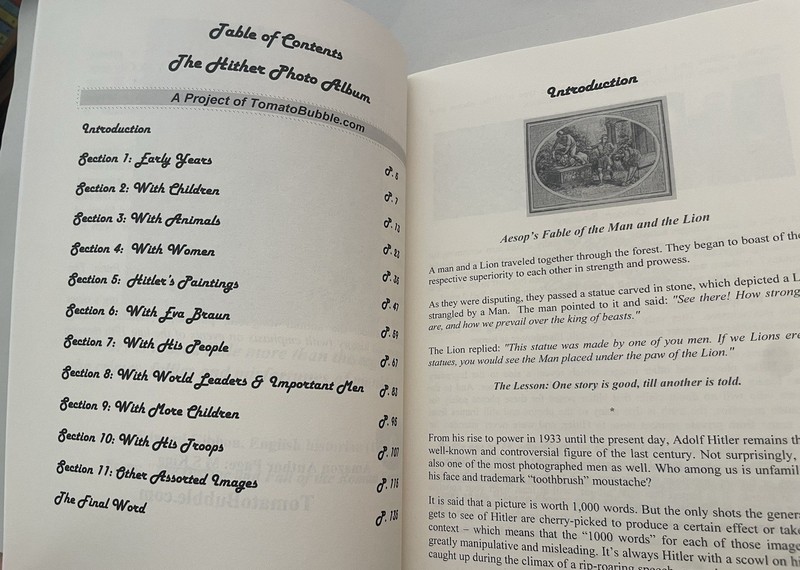 Table of Contents
The Hitler Photo Album
A Project of TomatoBubble.com
Introduction
Section 1: Early Years P. 7
Section 2: With Children
Section 3: With Animals P. 23
Section 4: With Women
Section 5: Hitler's Paintings P. 47
Section 6: With Eva Braun P. 59
Section 7: With His People P. 67
Section 8: With World Leaders & Important Men P. 83
Section 9: With More Children
Section 10: With His Troops P. 107
Section 11: Other Assorted Images
The Final Word
Introduction
Aesop's Fable of the Man and the Lion
A man and a Lion traveled together through the forest. They began to boast of the
respective superiority to each other in strength and prowess.
As they were disputing, they passed a statue carved in stone, which depicted a L
strangled by a Man. The man pointed to it and said: "See there! How strong
are, and how we prevail over the king of beasts."
The Lion replied: "This statue was made by one of you men. If we Lions ere
statues, you would see the Man placed under the paw of the Lion."
The Lesson: One story is good, till another is told.
From his rise to power in 1933 until the present day, Adolf Hitler remains th
well-known and controversial figure of the last century. Not surprisingly,
also one of the most photographed men as well. Who among us is unfamil
his face and trademark “toothbrush” moustache?
It is said that a picture is worth 1,000 words. But the only shots the gener
gets to see of Hitler are cherry-picked to produce a certain effect or take
context – which means that the “1000 words” for each of those image
greatly manipulative and misleading. It’s always Hitler with a scowl on hi
caught up during the climax of a rip-roaring